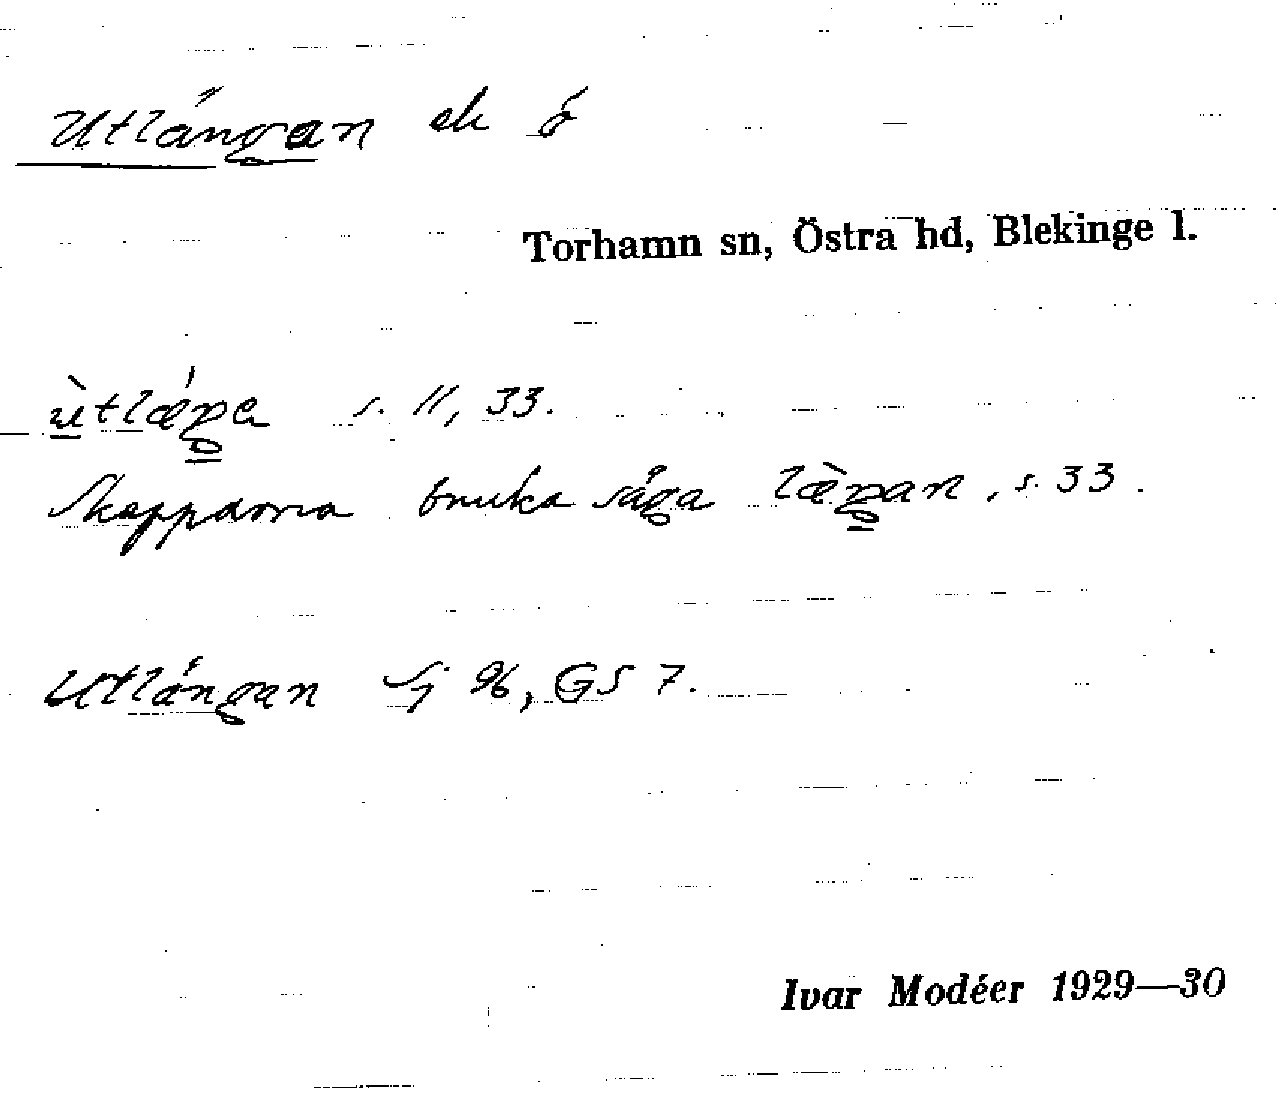 Utlängan ek ö
Torhamn sn, Östra hd, Blekinge l.
ùtlǽŋa s. 11, 33.
Skepparna bruka säga læ̀ŋan, s. 33.
Utlängan Sj 96, GS 7.
Ivar Modéer 1929—30